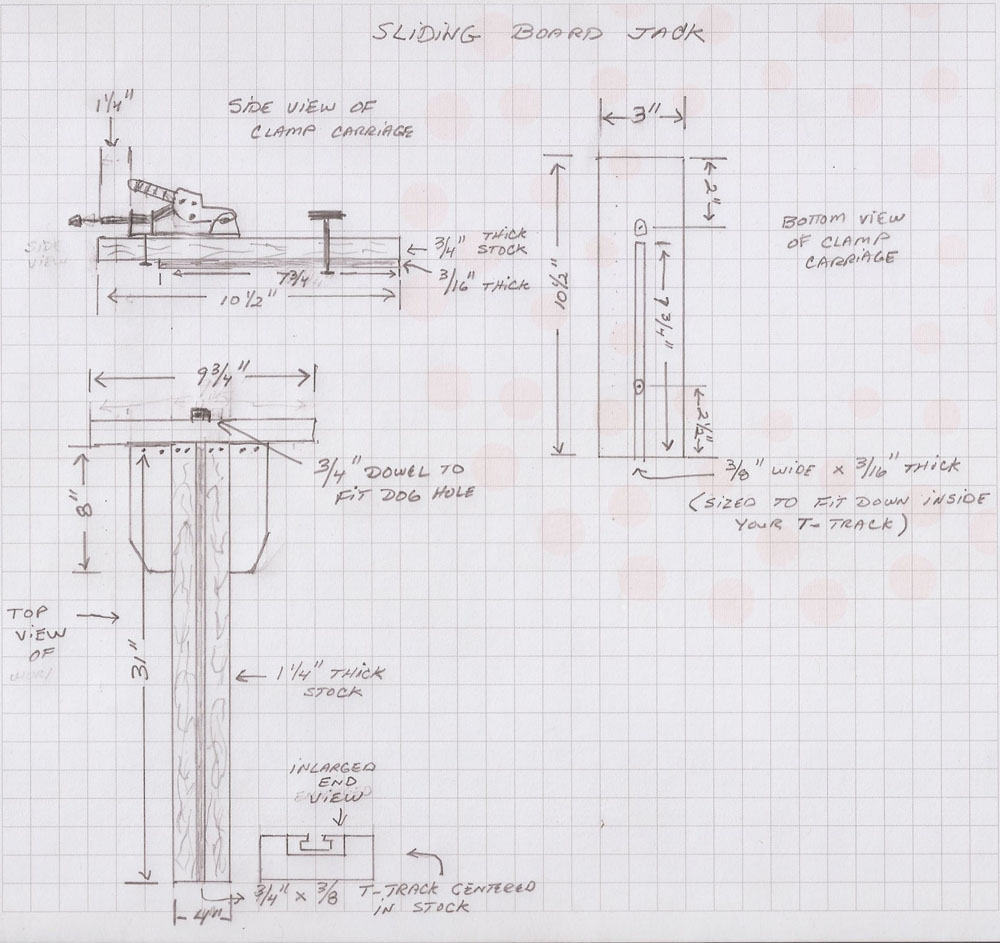 SLIDING BOARD JACK
1 1/4"
SIDE VIEW OF
CLAMP CARRIAGE
SIDE
VIEW
3/4" THICK
STOCK
3/16" THICK
7 3/4"
10 1/2"
3"
2"
10 1/2"
7 3/4"
2 1/2"
BOTTOM VIEW
OF CLAMP
CARRIAGE
3/8" WIDE × 3/16" THICK
(SIZED TO FIT DOWN INSIDE
YOUR T-TRACK)
9 3/4"
3/4" DOWEL TO
FIT DOG HOLE
8"
TOP
VIEW
OF
31"
1 1/4" THICK
STOCK
INLARGED
END
VIEW
4"
3/4" × 3/8 T-TRACK CENTERED
IN STOCK